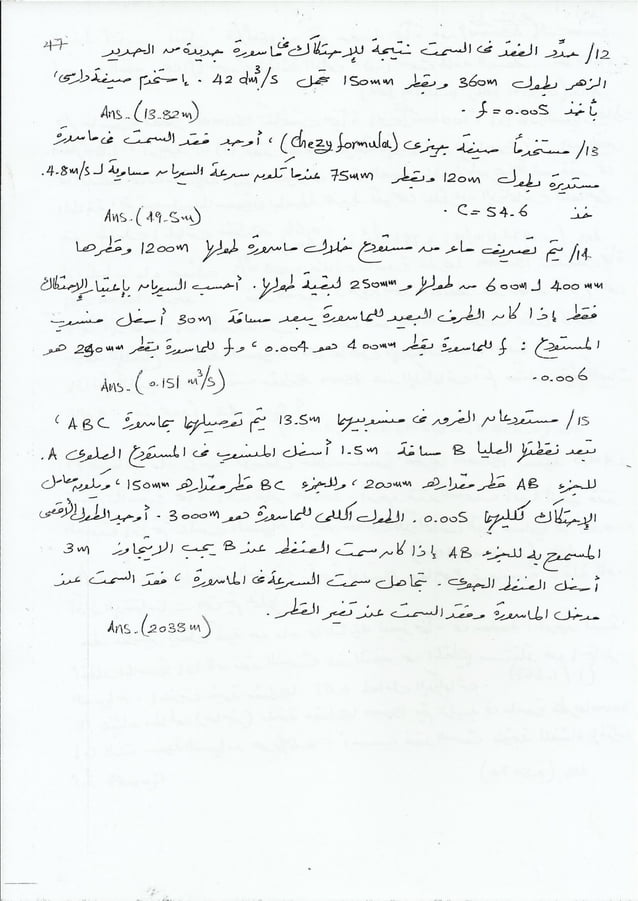 47
12/ حدّد الفقد فى السمت نتيجة للإحتكاك فى ماسورة جديدة من الحديد
الزهر بطول 360m وبقطر 150mm تحمل 42 dm³/s . إستخدم صيغة دارسى،
بأخذ f = 0.005 .
Ans. (13.82m)
13/ مستخدماً صيغة جيزى (Chezy formula)، أوجد فقد السمت فى ماسورة
مستديرة بطول 120m وبقطر 75mm عندما تكون سرعة السريان مساوية لـ 4.8m/s.
خذ C = 54.6 .
Ans. (49.5m)
14/ يتم تصريف ماء من مستودع خلال ماسورة طولها 1200m وقطرها
400mm لـ 600m من طولها و 250mm لبقية طولها. أحسب السريان بإعتبار الإحتكاك
فقط إذا كان الطرف البعيد للماسورة يبعد مسافة 30m أسفل منسوب
المستودع : f للماسورة بقطر 400mm هو 0.004، و f للماسورة بقطر 250mm هو
0.006.
Ans. (0.151 m³/s)
15/ مستودعان الفرق فى منسوبيهما 13.5m يتم توصيلهما بماسورة ABC،
تبعد نقطتها العليا B مسافة 1.5m أسفل المنسوب فى المستودع العلوى A.
للجزء AB قطر مقداره 200mm، وللجزء BC قطر مقداره 150mm، ويكون معامل
الإحتكاك لكليهما 0.005. الطول الكلى للماسورة هو 3000m. أوجد الطول الأقصى
المسموح به للجزء AB إذا كان سمت الضغط عند B يجب ألا يتجاوز 3m
أسفل الضغط الجوى. تجاهل سمت السرعة فى الماسورة، فقد السمت عند
مدخل الماسورة وفقد السمت عند تغير القطر.
Ans. (2033m)